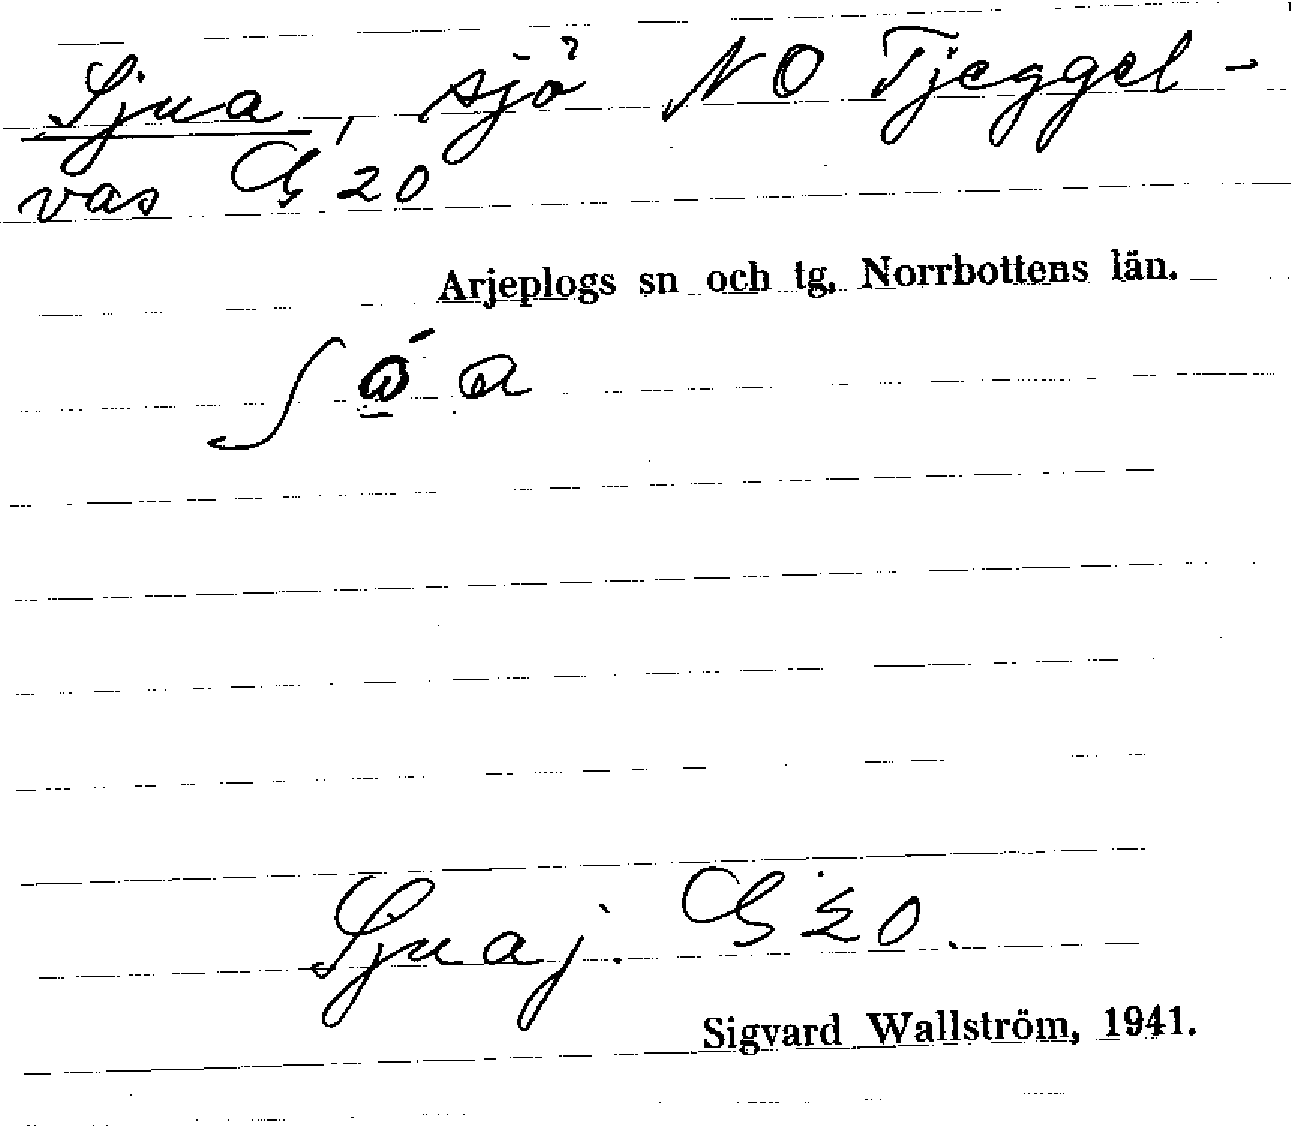 Sjua, sjö NO Tjeggel-
vas G 20
Arjeplogs sn och tg, Norrbottens län.
Sjuaj. G 20.
Sigvard Wallström, 1941.